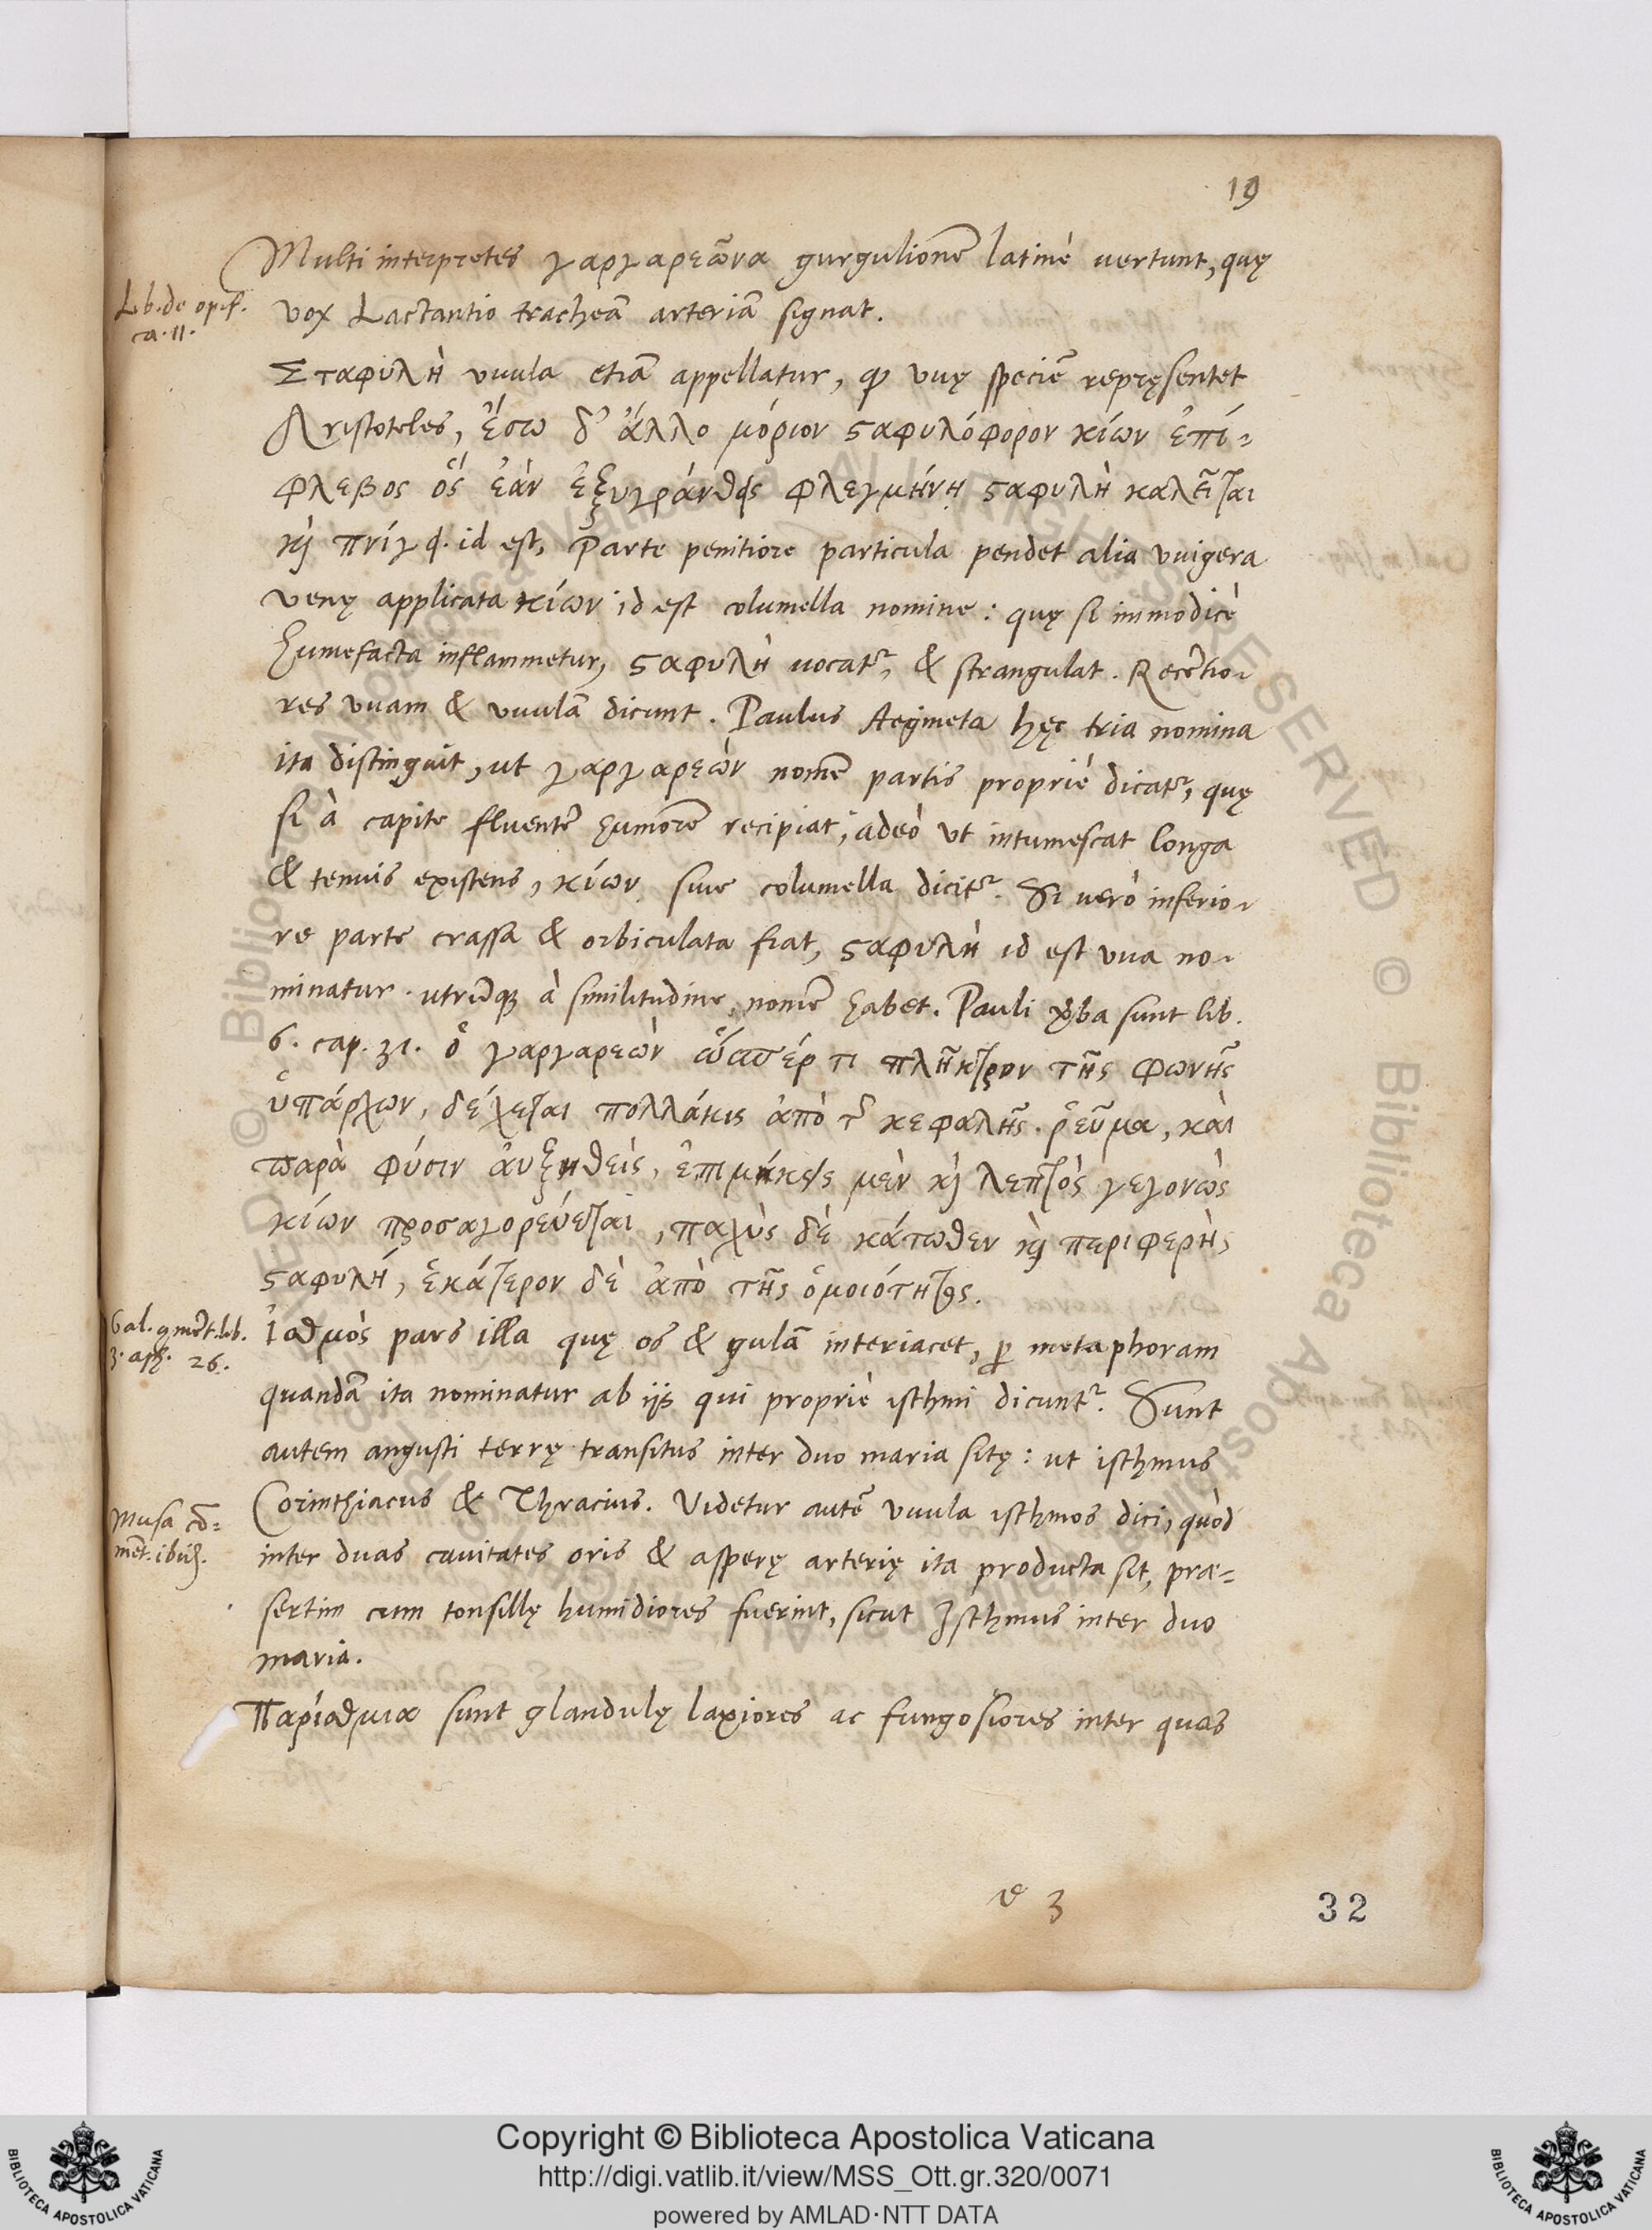 19
Multi interpretes γαργαρεῶνα gurgulionē latinè uertunt, quę
Lib. de opif.
ca. 11.
vox Lactantio tracheā arteriā signat.
Σταφυλὴ uuula etiā appellatur, qɔ̀ vuę speciē repręsentet
Aristoteles, ἔσω δ' ἄλλο μόριον ϛαφυλόφορον κίων ἐπί-
φλεβος ὅς ἐὰν ἐξυγράνθεις φλεγμήνῃ ϛαφυλὴ καλεῖται
κỳ πνίγει. id est, Parte penitiore particula pendet alia vuigera
venę applicata κίων id est columella nomine: quę si immodicè
humefacta inflammetur, ϛαφυλὴ uocat̃, & strangulat. Recētio-
res vuam & vuulā dicunt. Paulus Aegineta hęc tria nomina
ita distinguit, ut γαργαρεὼν nomē partis propriè dicat̃, quę
si à capite fluentē humorē recipiat, adeò vt intumescat longa
& tenuis existens, κίων siue columella dicit̃. Si uerò inferio-
re parte crassa & orbiculata fiat, ϛαφυλὴ id est vua no-
minatur. utrūqꝫ à similitudine nomē habet. Pauli ỽba sunt lib.
6. cap. 31. ὁ γαργαρεὼν ὥσπέρ τι πλῆκτρον τῆς φωνῆς
ὑπάρχων, δέχεται πολλάκις ἀπὸ τ̃ κεφαλῆς ῥεῦμα, καὶ
παρὰ φύσιν ἀυξηθεὶς, ἐπιμήκης μὲν κỳ λεπτὸς γεγονὼς
κίων προσαγορεύεται, παχὺς δὲ κάτωθεν κỳ περιφερὴς
ϛαφυλή, ἑκάτερον δὲ ἀπὸ τῆς ὁμοιότητος.
Gal. ꝯmēt. lib.
3. aph. 26.
Ἰσθμὸς pars illa quę os & gulā interiacet, ꝑ metaphoram
quandā ita nominatur ab ijs qui propriè isthmi dicunt̃. Sunt
autem angusti terrę transitus inter duo maria sitę: ut isthmus
Corinthiacus & Thracius. Videtur autē vuula isthmos dici, quòd
Musa cō-
mēt. ibid.
inter duas cauitates oris & asperę arterię ita producta sit, præ-
sertim cum tonsillę humidiores fuerint, sicut Isthmus inter duo
maria.
Παρίσθμια sunt glandulę laxiores ac fungosiores inter quas
e 3
32
Copyright © Biblioteca Apostolica Vaticana
http://digi.vatlib.it/view/MSS_Ott.gr.320/0071
powered by AMLAD·NTT DATA
BIBLIOTECA APOSTOLICA VATICANA
BIBLIOTECA APOSTOLICA VATICANA